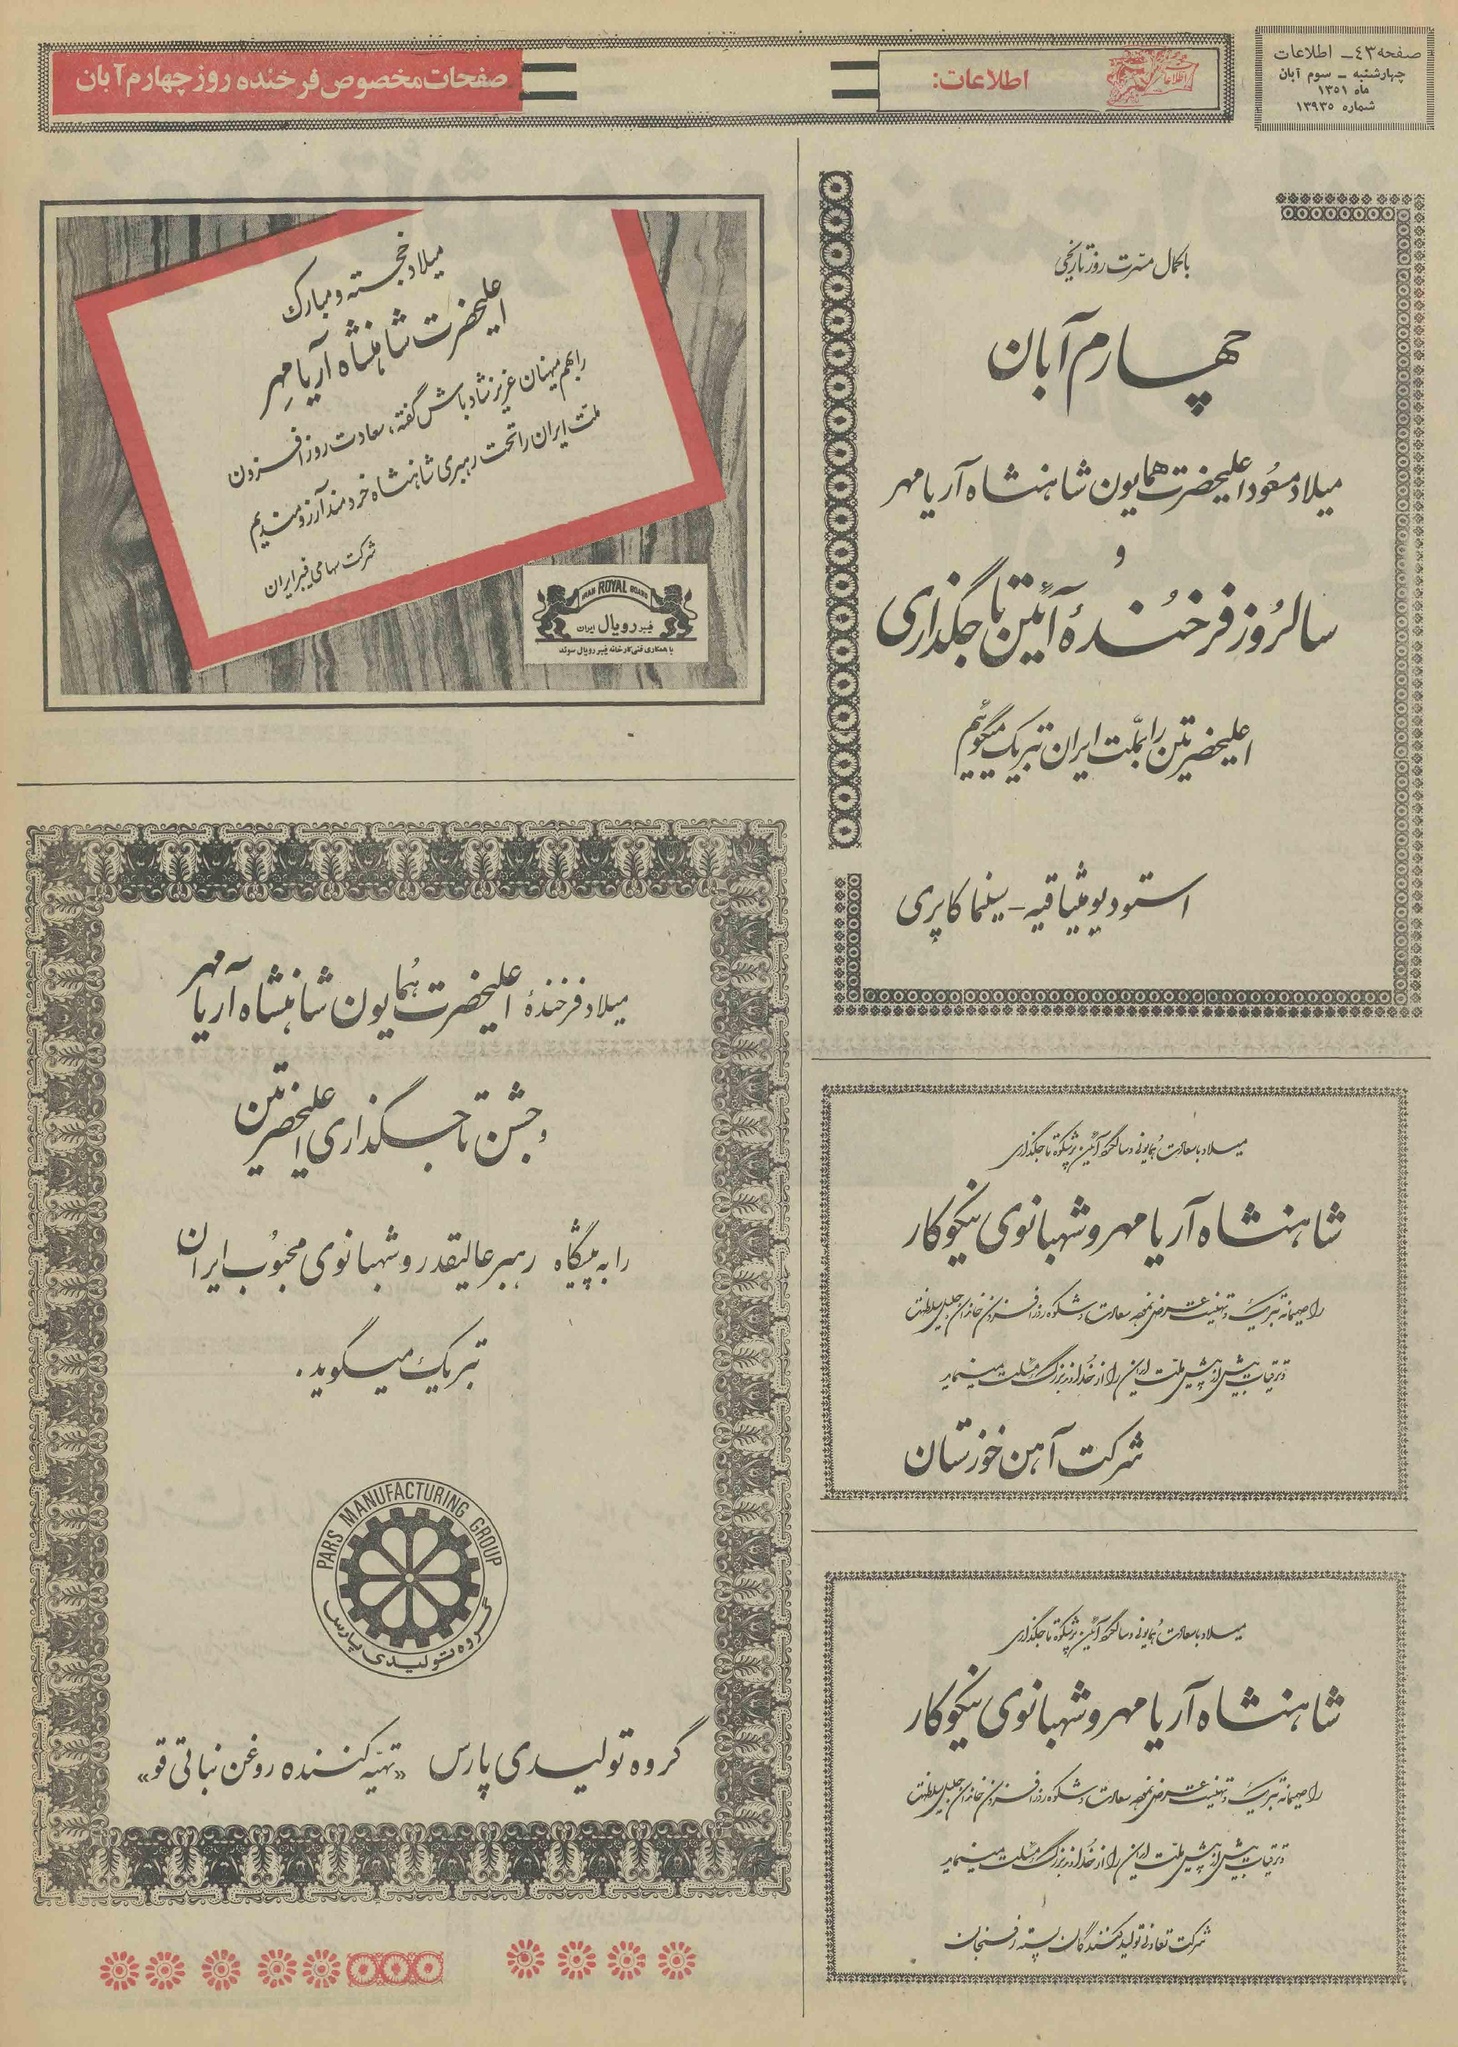 صفحه ٤٣ - اطلاعات
چهارشنبه - سوم آبان
ماه ١٣٥١
شماره ١٣٩٣٥
اطلاعات:
صفحات مخصوص فرخنده روز چهارم آبان
با کمال مسرت روز تاریخی
چهارم آبان
میلاد مسعود اعلیحضرت همایون شاهنشاه آریامهر
و
سالروز فرخنده آئین تاجگذاری
اعلیحضرتین را بملت ایران تبریک میگوئیم
استودیو میثاقیه - سینما کاپری
میلاد با سعادت همایونی و سالگرد آئین پرشکوه تاجگذاری
شاهنشاه آریامهر و شهبانوی نیکوکار
را صمیمانه تبریک و تهنیت عرض نموده سعادت و شکوه روزافزون خاندان جلیل سلطنت
و ترقیات بیش از پیش ملت ایران را از خداوند بزرگ مسئلت مینماید
شرکت آهن خوزستان
میلاد با سعادت همایونی و سالگرد آئین پرشکوه تاجگذاری
شاهنشاه آریامهر و شهبانوی نیکوکار
را صمیمانه تبریک و تهنیت عرض نموده سعادت و شکوه روزافزون خاندان جلیل سلطنت
و ترقیات بیش از پیش ملت ایران را از خداوند بزرگ مسئلت مینماید
شرکت تعاونی تولیدکنندگان پسته رفسنجان
میلاد خجسته و مبارک
اعلیحضرت شاهنشاه آریامهر
را بهم میهنان عزیز شادباش گفته، سعادت روزافزون
ملت ایران را تحت رهبری شاهنشاه خردمند آرزومندیم
شرکت سهامی فیبر ایران
IRAN ROYAL BOARD
فیبر رویال ایران
با همکاری فنی کارخانه فیبر رویال سوئد
میلاد فرخندۀ اعلیحضرت همایون شاهنشاه آریامهر
و جشن تاجگذاری اعلیحضرتین
را به پیشگاه رهبر عالیقدر و شهبانوی محبوب ایران
تبریک میگوید.
PARS MANUFACTURING GROUP
گروه تولیدی پارس
گروه تولیدی پارس «تهیه کننده روغن نباتی قو»